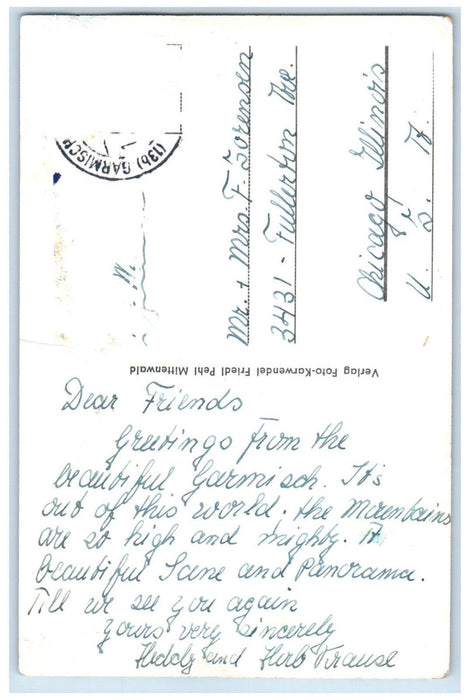 (13b) GARMISCH
Mr. + Mrs. F. Sorensen
3431 - Fullerton Ave.
Chicago Illinois
U. S. A.
Verlag Foto-Karwendel Friedl Pehl Mittenwald
Dear Friends
Greetings from the
beautiful Garmisch. It's
out of this world. the Mountains
are so high and mighty. A
beautiful Sane and Panorama.
Till we see you again
Yours very sincerely
Heddy and Herb Krause